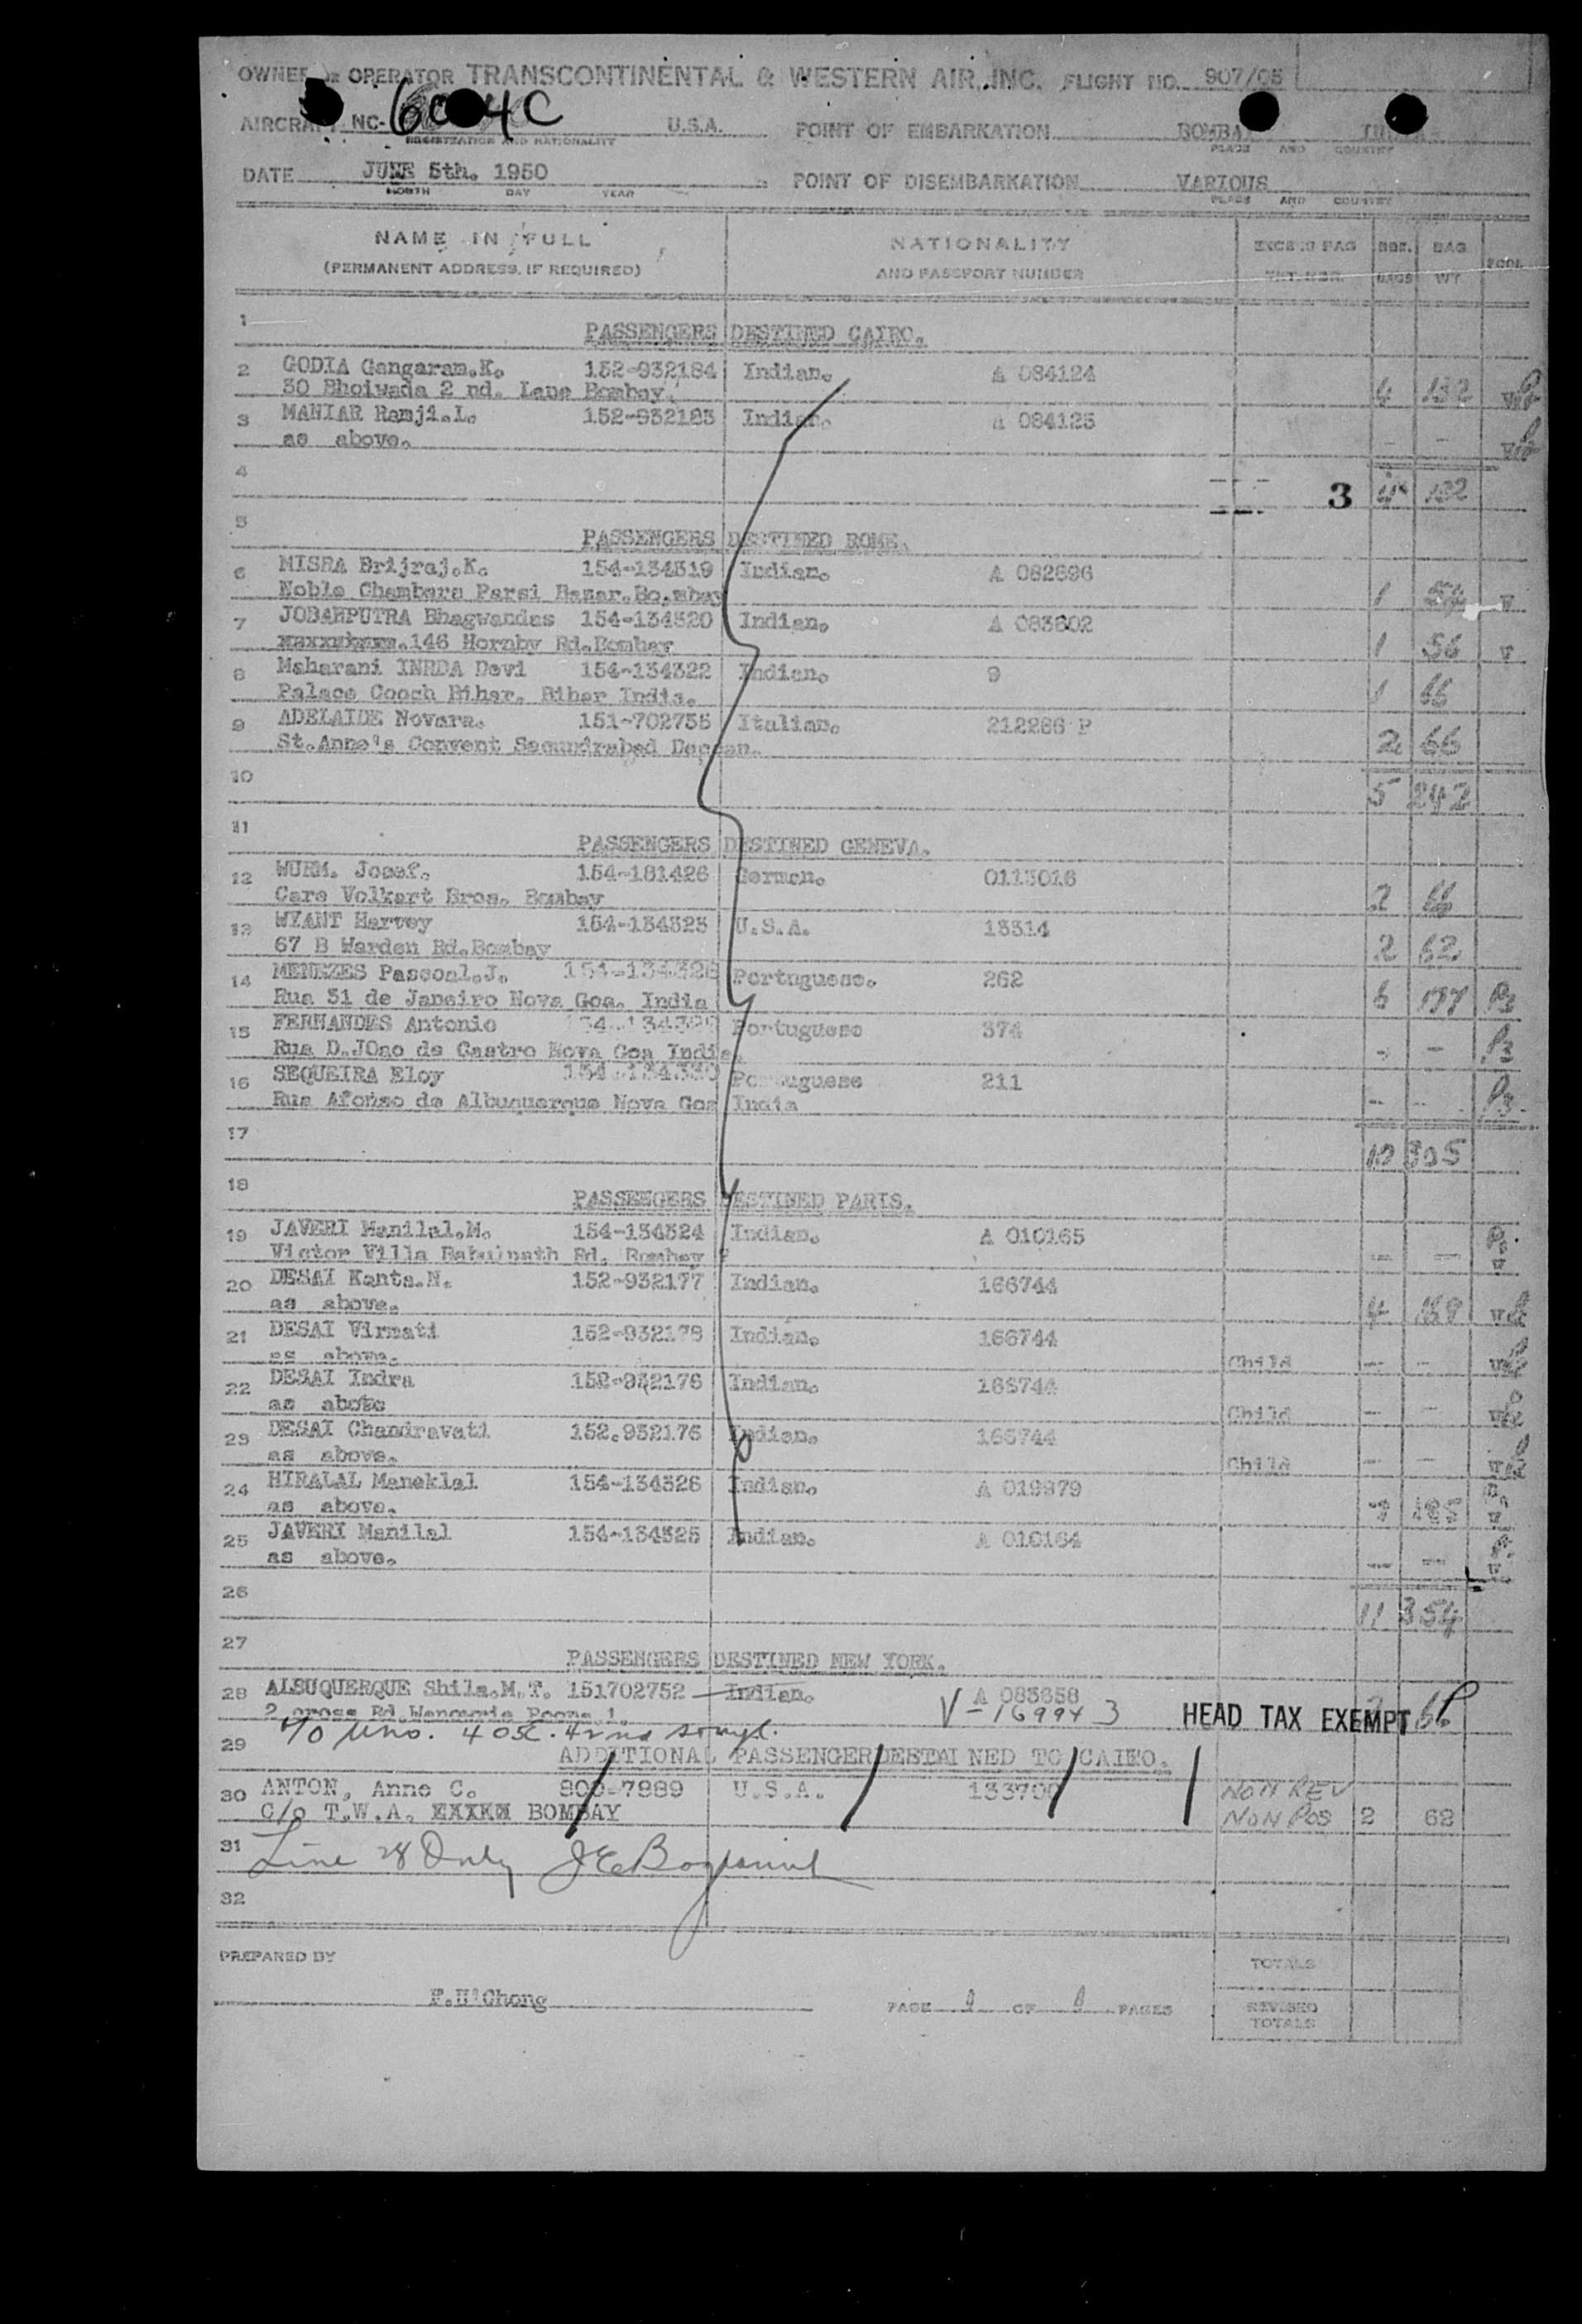 OWNER OR OPERATOR TRANSCONTINENTAL & WESTERN AIR, INC. FLIGHT NO. 907/05
AIRCRAFT NC- U.S.A. POINT OF EMBARKATION BOMBAY
REGISTRATION AND NATIONALITY PLACE AND COUNTRY
DATE JUNE 5th. 1950 POINT OF DISEMBARKATION VARIOUS
MONTH DAY YEAR PLACE AND COUNTRY
NAME IN FULL NATIONALITY EXCESS BAG BAG
(PERMANENT ADDRESS, IF REQUIRED) AND PASSPORT NUMBER TKT. NBR. BAGS WT POOL
1
PASSENGERS DESTINED CAIRO.
2 GODIA Gangaram.K. 152-932184 Indian. A 084124
30 Bhoiwada 2 nd. Lane Bombay. 4 132
3 MANIAR Ramji.L. 152-932183 Indian. A 084125
as above. - -
4 3 4 132
5
PASSENGERS DESTINED ROME.
6 MISRA Brijraj.K. 154-134319 Indian. A 082896
Noble Chambers Parsi Bazar.Bo,mbay 1 54 v
7 JOBANPUTRA Bhagwandas 154-134320 Indian. A 083602
146 Hornby Rd.Bombay 1 56 v
8 Maharani INRDA Devi 154-134322 Indian. 9
Palace Cooch Bihar. Bihar India. 1 66
9 ADELAIDE Novara. 151-702755 Italian. 212286 P
St.Anne's Convent Secundrabad Deccan. 2 66
10 5 242
11
PASSENGERS DESTINED GENEVA.
12 WURM. Josef. 154-181426 German. 0113016
Care Volkart Bros. Bombay 2 66
13 WYANT Harvey 154-134323 U.S.A. 13314
67 B Warden Rd.Bombay 2 62
14 MENEZES Pascoal.J. 154-134328 Portuguese. 262
Rua 31 de Janeiro Nova Goa. India 6 177 P3
15 FERNANDES Antonio 154-134329 Portuguese 374
Rua D.JOao de Castro Nova Goa India. - - P3
16 SEQUEIRA Eloy 154-134330 Portuguese 211
Rua Afonso de Albuquerque Nova Goa India - - P3
17 10 305
18
PASSENGERS DESTINED PARIS.
19 JAVERI Manilal.M. 154-134324 Indian. A 010165
Victor Villa Babulnath Rd. Bombay 7 - -
20 DESAI Kanta.N. 152-932177 Indian. 166744
as above. 4 169
21 DESAI Virmati 152-932178 Indian. 166744
as above. Child - -
22 DESAI Indra 152-932176 Indian. 166744
as above Child - -
23 DESAI Chandravati 152.932176 Indian. 166744
as above. Child - -
24 HIRALAL Maneklal 154-134326 Indian. A 019979
as above. 7 185
25 JAVERI Manilal 154-134325 Indian. A 010164
as above. - -
26 11 354
27
PASSENGERS DESTINED NEW YORK.
28 ALBUQUERQUE Shila.M.T. 151702752 Indian. A 083658
2 cross Rd. Poona.1. V-169943 HEAD TAX EXEMPT 66
c/o Uno. 405E. 42nd
29
ADDITIONAL PASSENGER DESTAI NED TO CAIRO.
30 ANTON, Anne C. 800-7989 U.S.A. NON REV
C/o T.W.A. BOMBAY NON POS 2 62
31 Line 28 Only
32
PREPARED BY TOTALS
F.H'Chong PAGE 1 OF 1 PAGES REVISED
TOTALS